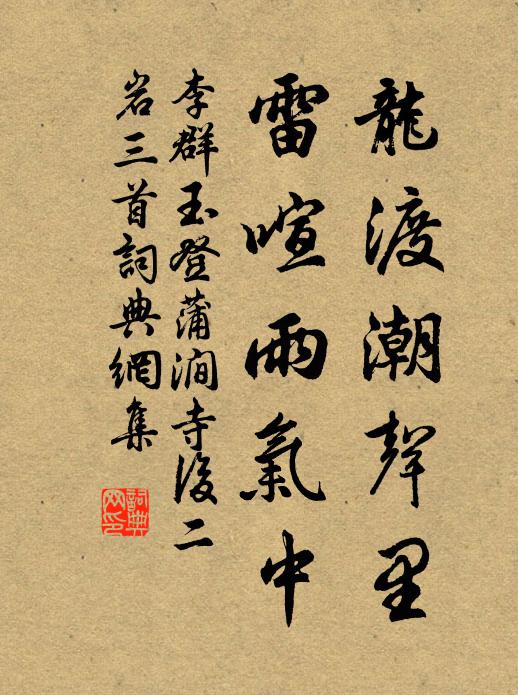 龍渡潮聲里
雷喧雨氣中
李群玉登蒲澗寺後二
岩三首詞典網集
詞典網印